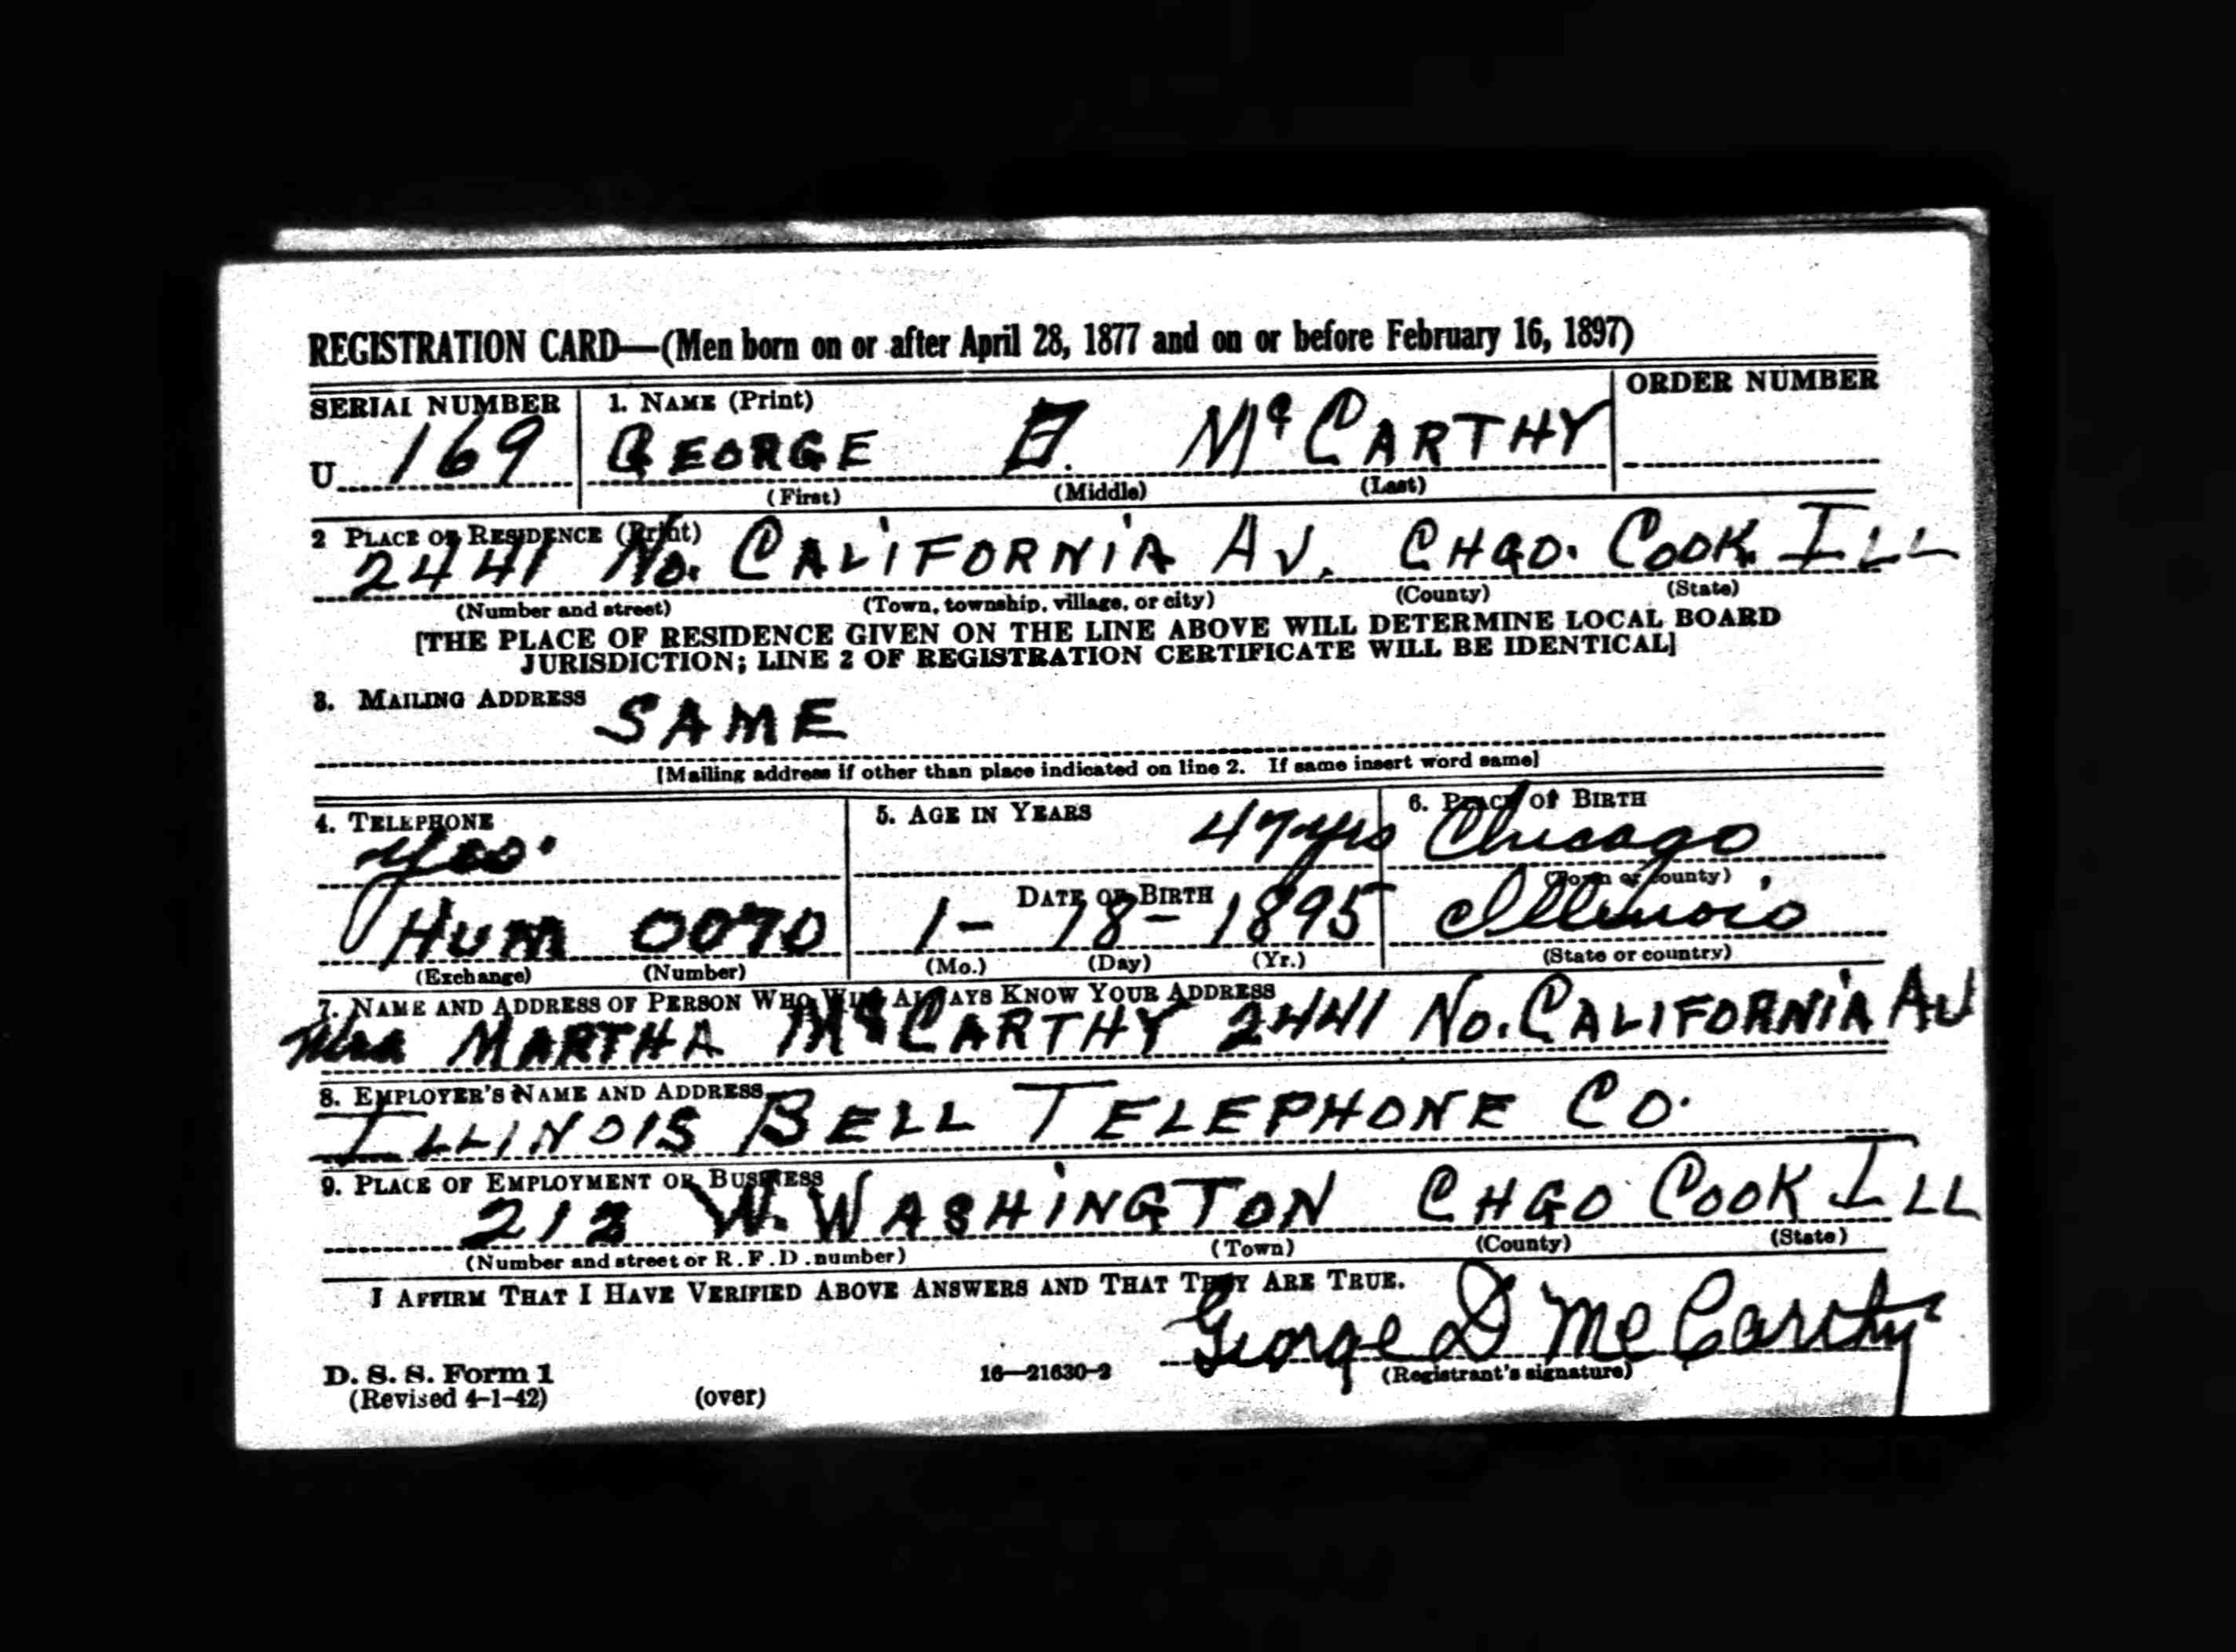 REGISTRATION CARD—(Men born on or after April 28, 1877 and on or before February 16, 1897)
SERIAL NUMBER 1. NAME (Print) ORDER NUMBER
U 169 GEORGE McCARTHY
(First) (Middle) (Last)
2 PLACE OF RESIDENCE (Print)
2441 No. CALIFORNIA AV. CHGO. COOK ILL
(Number and street) (Town, township, village, or city) (County) (State)
[THE PLACE OF RESIDENCE GIVEN ON THE LINE ABOVE WILL DETERMINE LOCAL BOARD
JURISDICTION; LINE 2 OF REGISTRATION CERTIFICATE WILL BE IDENTICAL]
3. MAILING ADDRESS
SAME
[Mailing address if other than place indicated on line 2. If same insert word same]
4. TELEPHONE 5. AGE IN YEARS 6. PLACE OF BIRTH
Yes. 47 yrs Chicago
DATE OF BIRTH (Town or county)
HUM 0070 1- 18- 1895 Illinois
(Exchange) (Number) (Mo.) (Day) (Yr.) (State or country)
7. NAME AND ADDRESS OF PERSON WHO WILL ALWAYS KNOW YOUR ADDRESS
Mrs MARTHA McCARTHY 2441 No. CALIFORNIA AV
8. EMPLOYER'S NAME AND ADDRESS
ILLINOIS BELL TELEPHONE CO.
9. PLACE OF EMPLOYMENT OR BUSINESS
212 W. WASHINGTON CHGO COOK ILL
(Number and street or R. F. D. number) (Town) (County) (State)
I AFFIRM THAT I HAVE VERIFIED ABOVE ANSWERS AND THAT THEY ARE TRUE.
George D McCarthy
D. S. S. Form 1 16—21630-2 (Registrant's signature)
(Revised 4-1-42) (over)